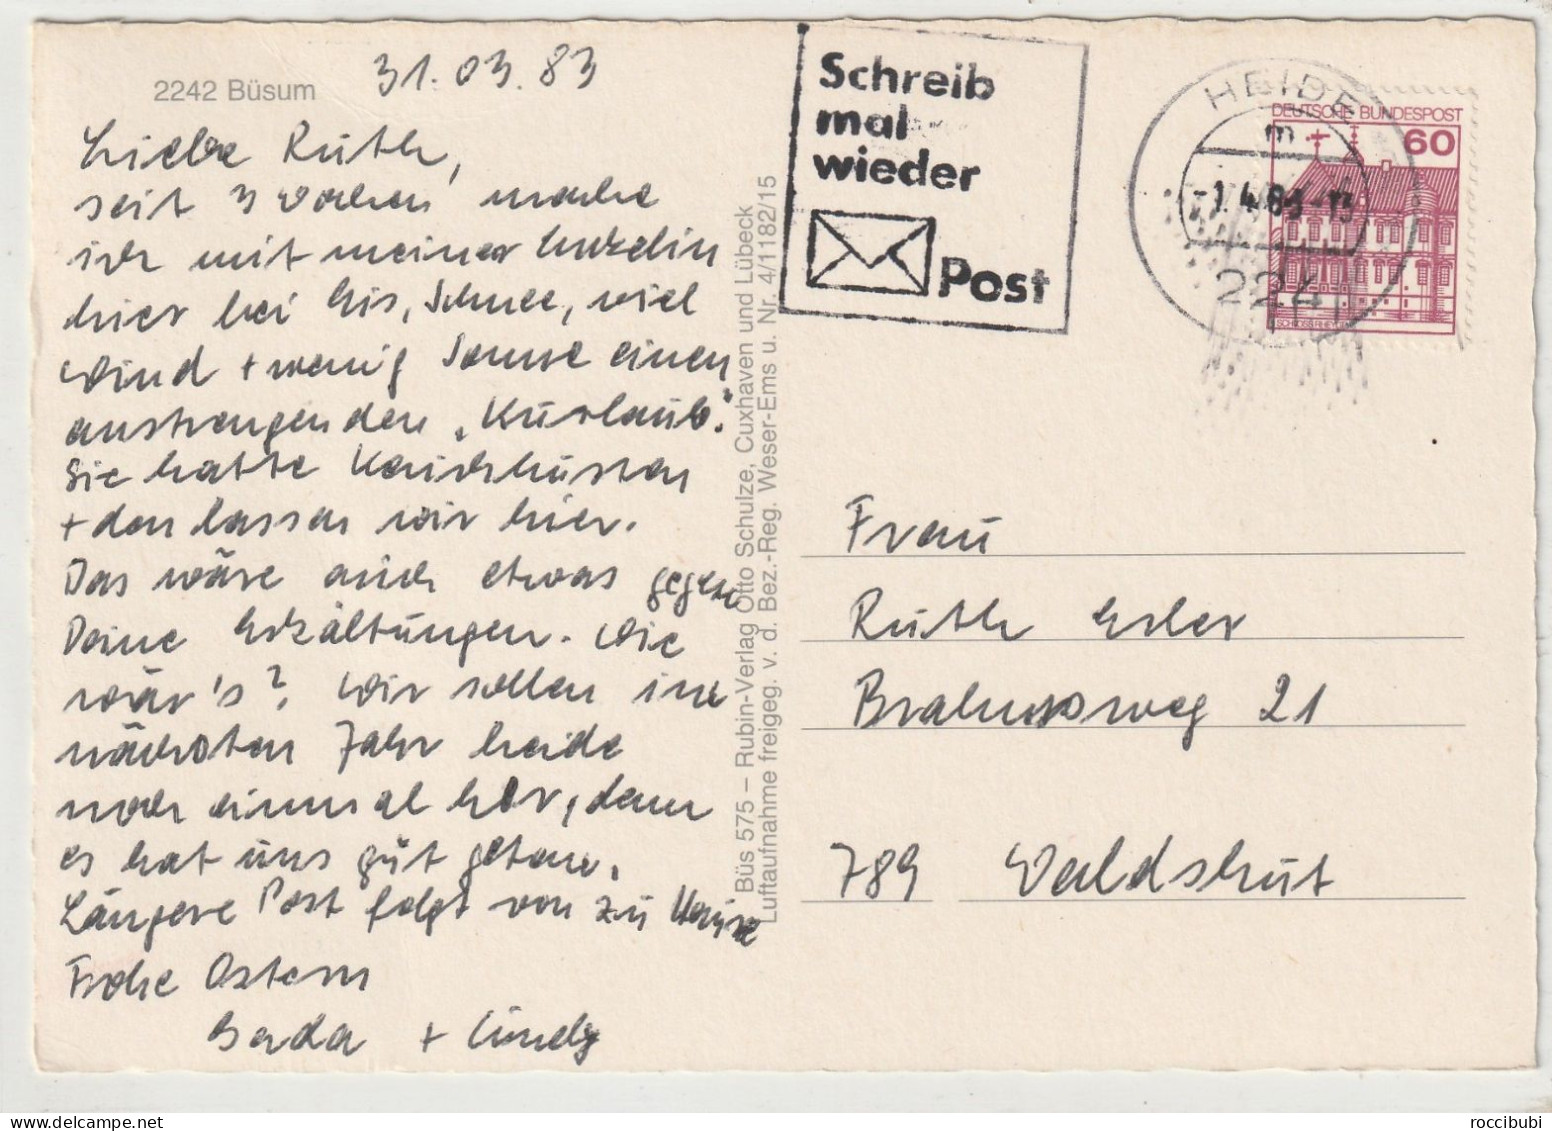 2242 Büsum
31.03.83
Liebe Ruth,
seit 3 Wochen mache
ich mit meiner Enkelin
hier bei Eis, Schnee, viel
Wind + wenig Sonne einen
anstrengenden „Kurlaub“.
Sie hatte Keuchhusten
+ den lassen wir hier.
Das wäre auch etwas gegen
Deine Erkältungen. Wie
wär's? Wir sollen im
nächsten Jahr beide
noch einmal her, denn
es hat uns gut getan.
Längere Post folgt von zu Hause
Frohe Ostern
+
Büs 575 – Rubin-Verlag Otto Schulze, Cuxhaven und Lübeck
Luftaufnahme freigeg. v. d. Bez.-Reg. Weser-Ems u. Nr. 4/1182/15
Schreib
mal
wieder
Post
HEIDE
m
-1.4.83-13
2240
DEUTSCHE BUNDESPOST
60
SCHLOSS RHEYDT
Frau
Ruth Erler
Brahmsweg 21
789 Waldshut
roccibubi